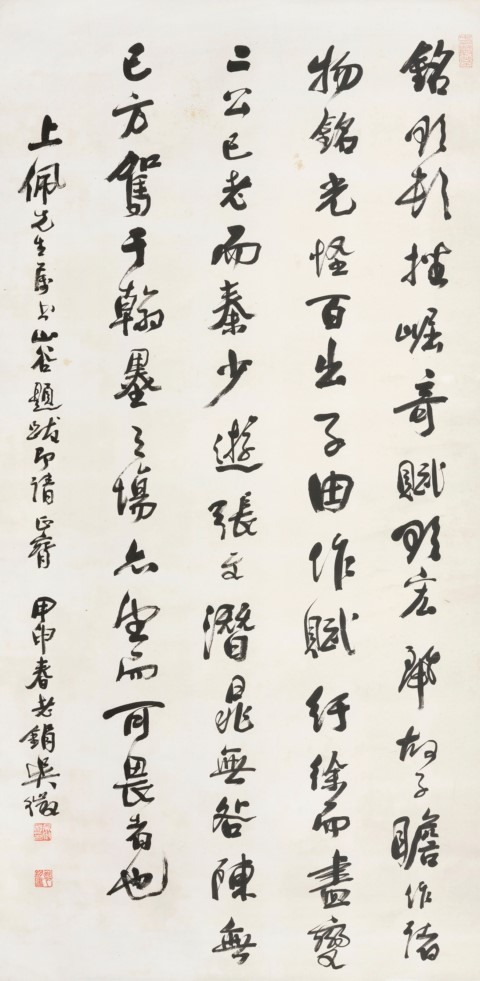 銘欲頓挫崛奇賦欲宏麗故子瞻作諸
物銘光怪百出子由作賦紆徐而盡變
二公已老而秦少游張文潛晁無咎陳無
己方駕于翰墨之場亦望而可畏者也
上佩先生屬書山谷題跋即請正腕 甲申春老鐵吳徵